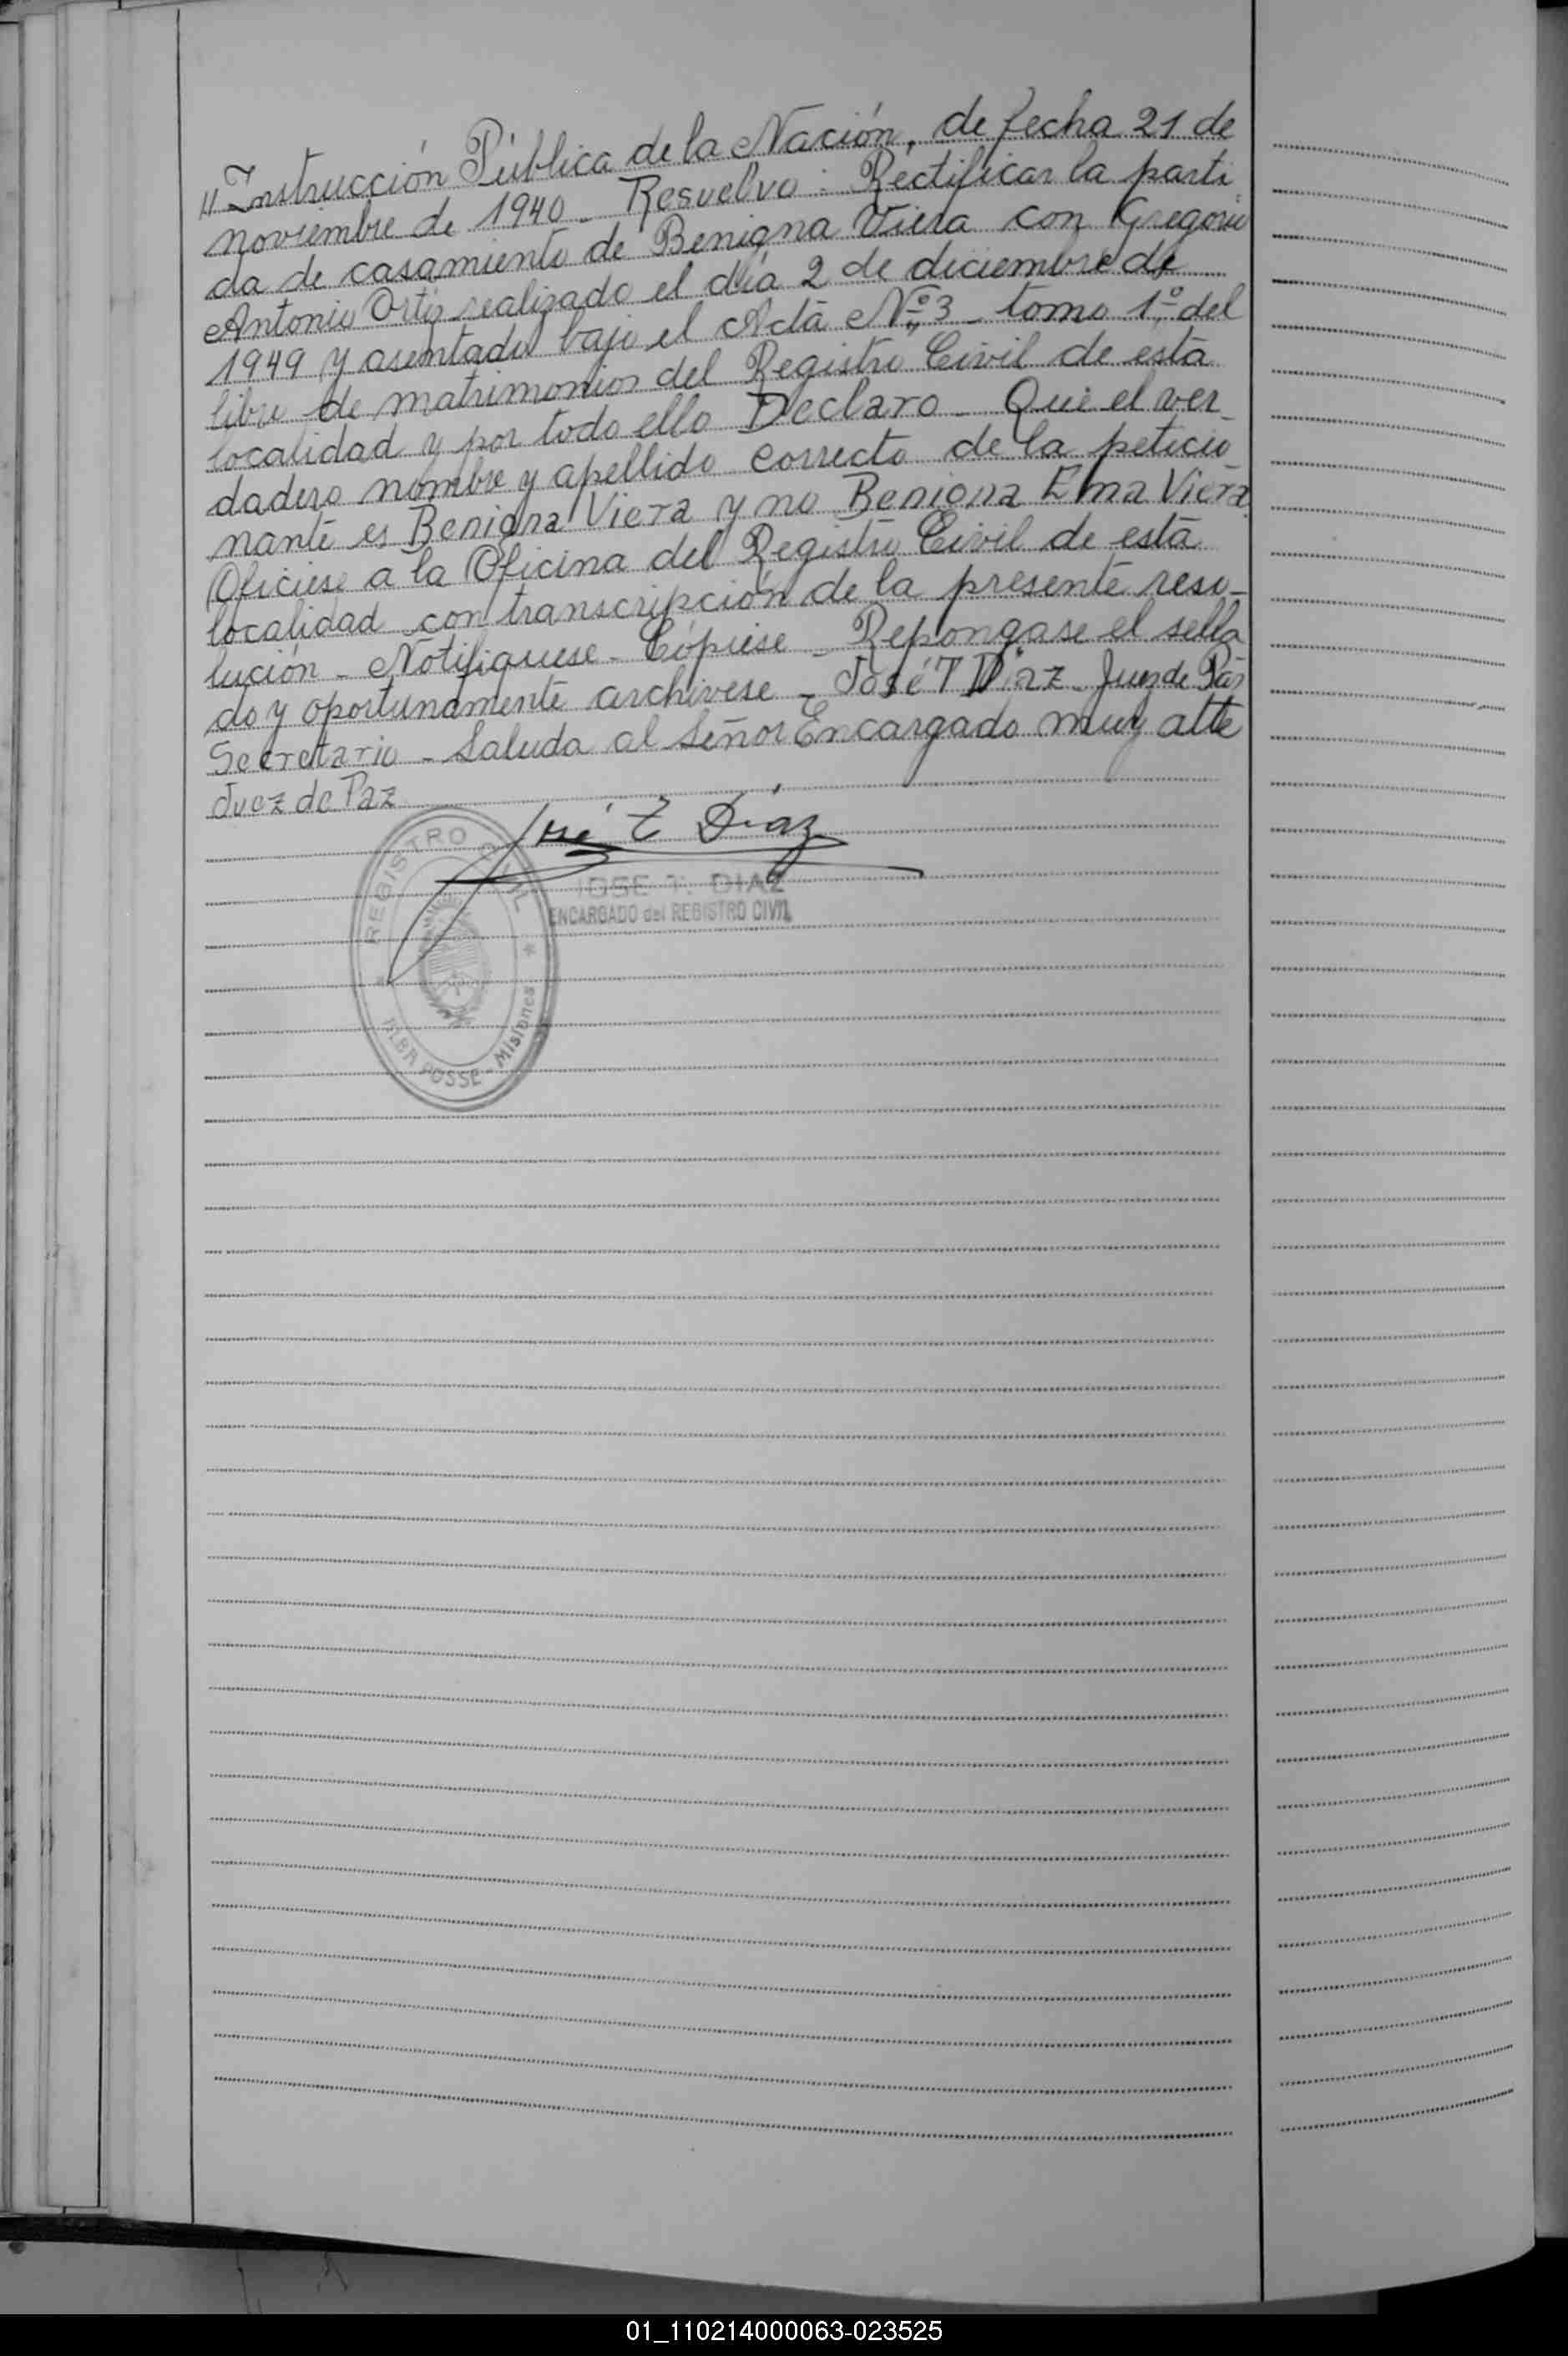 "Instrucción Pública de la Nación, de fecha 21 de
noviembre de 1940 - Resuelvo : Rectificar la parti
da de casamiento de Benigna Viera con Gregorio
Antonio Ortiz realizado el día 2 de diciembre de
1949 y asentado bajo el Acta Nº 3 - tomo 1º del
libro de matrimonios del Registro Civil de esta
localidad y por todo ello Declaro - Que el ver_
dadero nombre y apellido correcto de la peticio
nante es Benigna Viera y no Benigna Ema Viera
Oficiese a la Oficina del Registro Civil de esta
localidad con transcripción de la presente reso_
lución - Notifiquese - Cópiese - Repongase el sella
do y oportunamente archivese - José T Diaz - Juez de Paz
Secretario - Saluda al Señor Encargado muy atte
Juez de Paz
José T Diaz
JOSE T. DIAZ
ENCARGADO del REGISTRO CIVIL
REGISTRO CIVIL
ALBA POSSE - Misiones
01_110214000063-023525